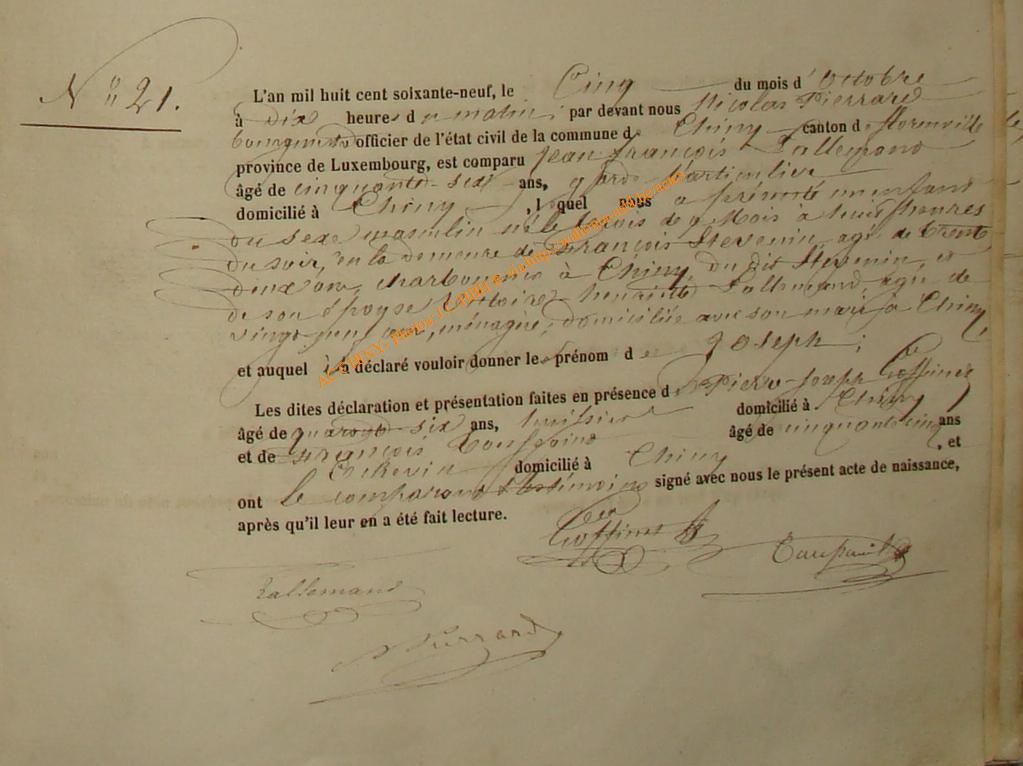 N° 21.
L'an mil huit cent soixante-neuf, le Cinq du mois d'Octobre
à dix heures du matin, par devant nous Nicolas Pierrard
bourgmestre officier de l'état civil de la commune de Chiny canton de Florenville
province de Luxembourg, est comparu Jean François Lallemand
âgé de cinquante-six ans, garde particulier
domicilié à Chiny, lequel nous a présenté un enfant
du sexe masculin né le trois de ce Mois à huit heures
du soir, en la demeure de François Stevenin, âgé de trente
deux ans, charbonnier à Chiny, du dit Stevenin, et
de son épouse Victoire Henriette Lallemand âgée de
vingt neuf ans, ménagère, domiciliée avec son mari à Chiny,
et auquel il a déclaré vouloir donner le prénom de Joseph;
Les dites déclaration et présentation faites en présence de Pierre-Joseph Goffinet
âgé de quarante-six ans, huissier domicilié à Chiny
et de François Toussaint âgé de cinquante cinq ans
Echevin domicilié à Chiny, et
ont le comparant & les témoins signé avec nous le présent acte de naissance,
après qu'il leur en a été fait lecture.
Goffinet
Toussaint
Lallemand
N Pierrard